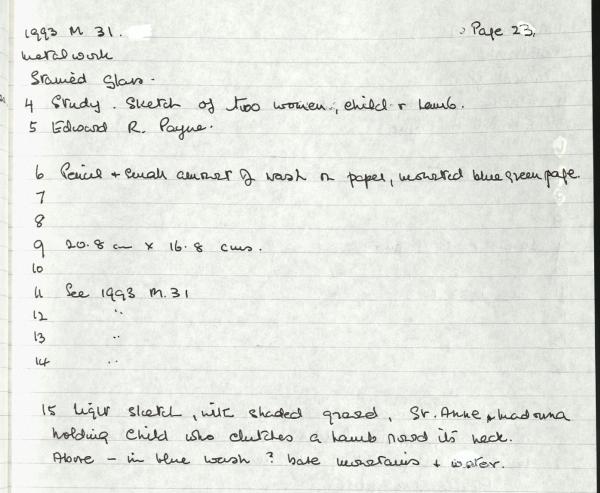 1993 M 31. Page 23.
Metalwork
Stained Glass.
4 Study. Sketch of two women, child & lamb.
5 Edward R. Payne.
6 Pencil + small amount of wash on paper, mounted blue green paper.
7
8
9 20.8 cm x 16.8 cms.
10
11 See 1993 M.31
12 "
13 "
14 "
15 Light sketch, with shaded ground, St. Anne & Madonna
holding child who clutches a lamb round its neck.
Above - in blue wash ? bare mountains + water.